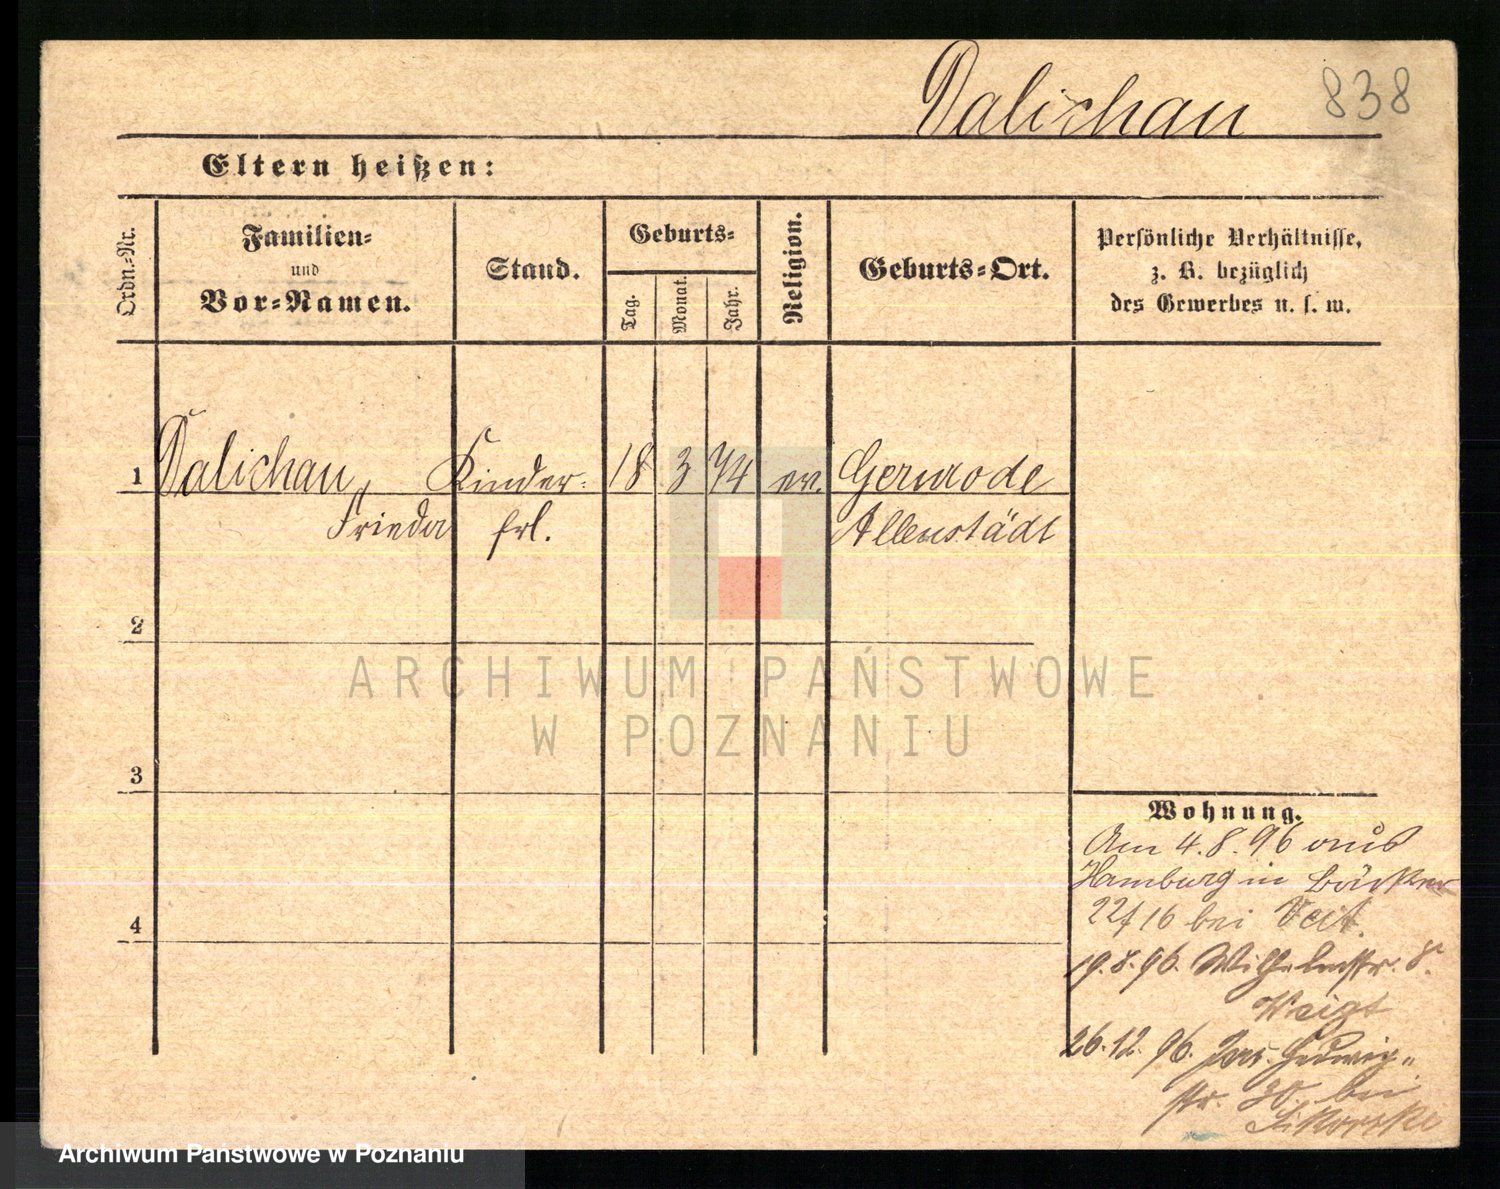 Dalichau 838
Eltern heißen:
Ordn.-Nr.
Familien-
und
Vor-Namen.
Stand.
Geburts-
Tag.
Monat.
Jahr.
Religion.
Geburts-Ort.
Persönliche Verhältnisse,
z. B. bezüglich
des Gewerbes u. s. w.
1 Dalichau, Kinder- 18 3 74 ev. Gernrode
Frieda frl. Allenstädt
2
ARCHIWUM PAŃSTWOWE
W POZNANIU
3
Wohnung.
Am 4.8.96 aus
Hamburg in Bäcker
22/16 bei Veit.
19.8.96. Wilhelmstr. 8.
Weigt
4
26.12.96. Hedwig-
str. 20. bei
Sikorski
Archiwum Państwowe w Poznaniu